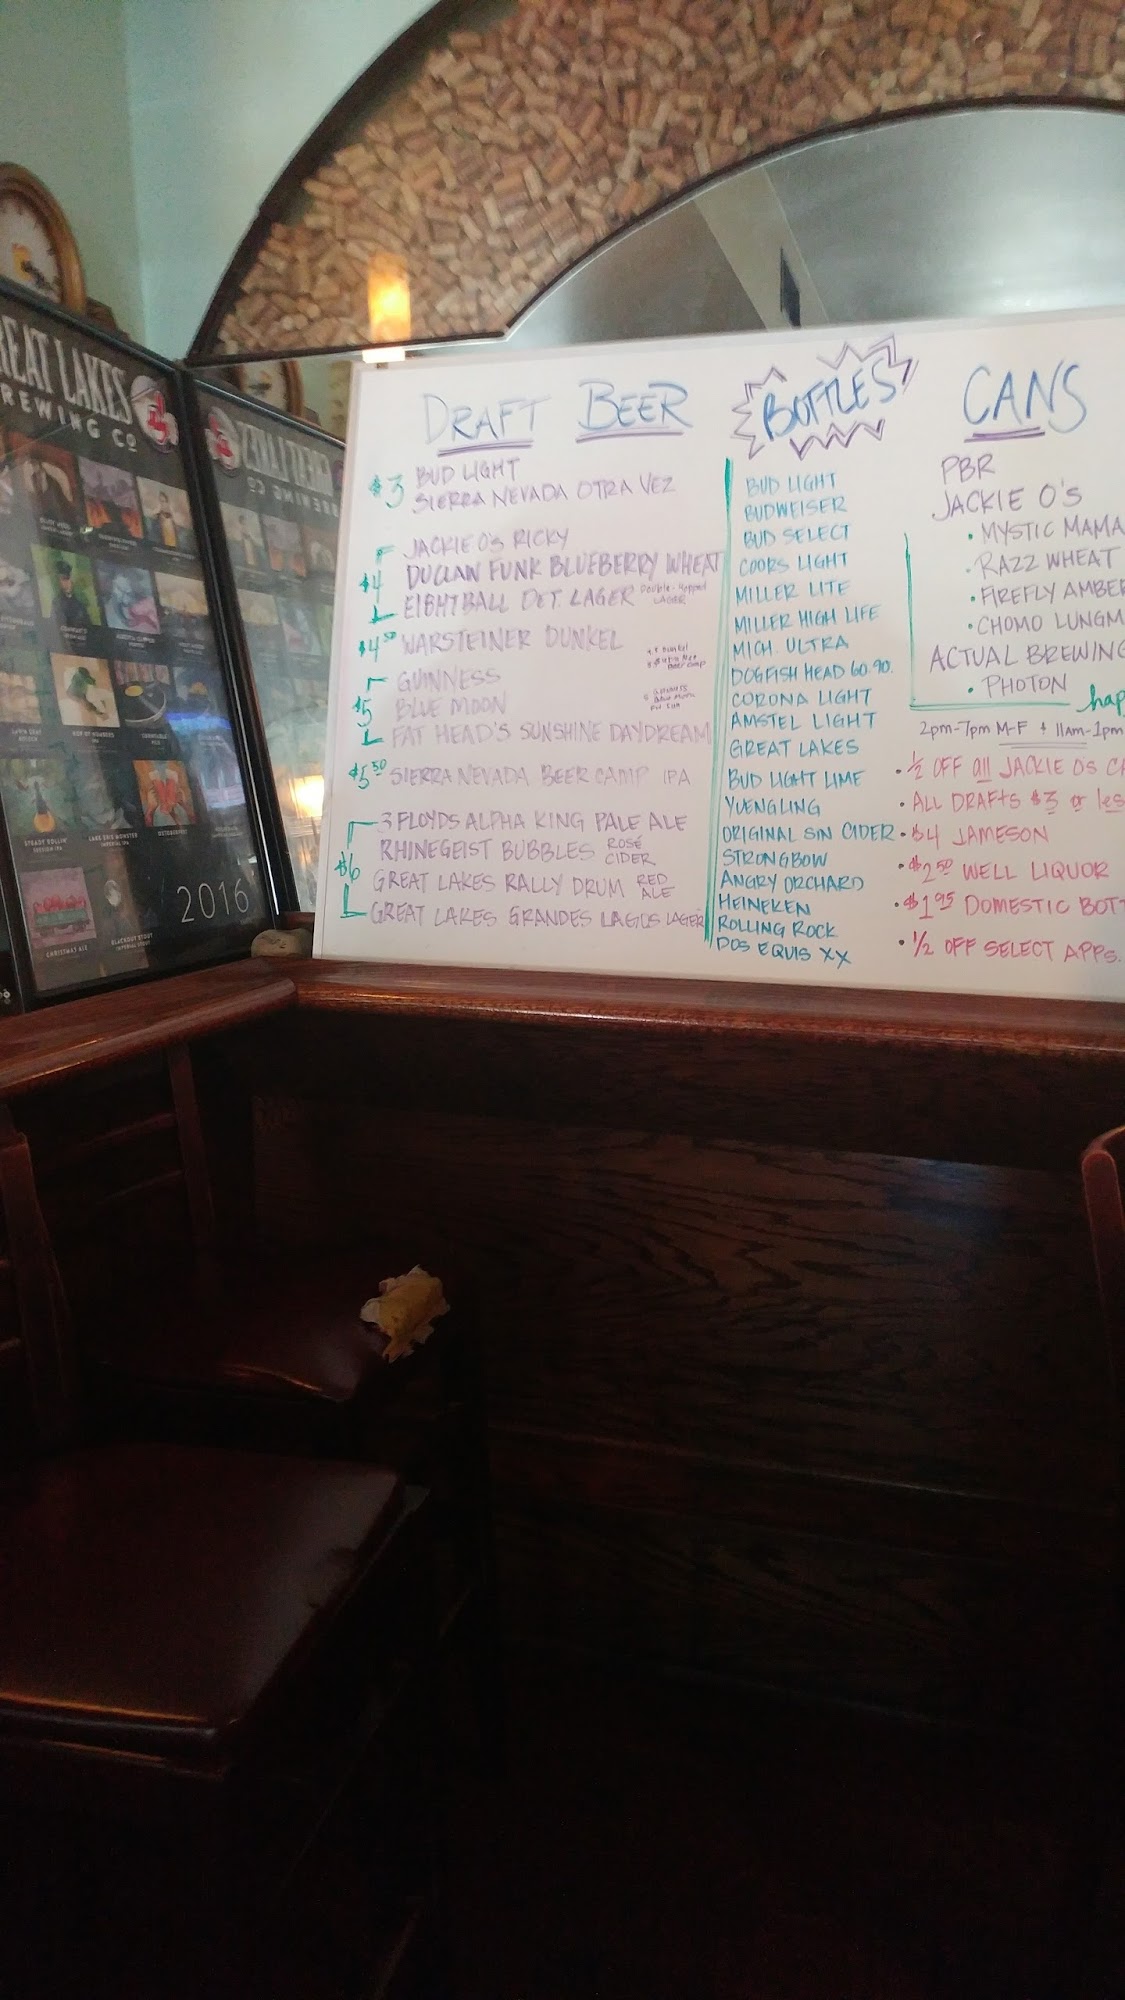 GREAT LAKES
BREWING CO
CHRISTMAS ALE
BLACKOUT STOUT
2016
DRAFT BEER
$3 BUD LIGHT
SIERRA NEVADA OTRA VEZ
JACKIE O'S RICKY
$4 DUCLAW FUNK BLUEBERRY WHEAT
EIGHTBALL DET. LAGER Double-Hopped LAGER
$4 50 WARSTEINER DUNKEL
GUINNESS
$5 BLUE MOON
FAT HEAD'S SUNSHINE DAYDREAM
$5 50 SIERRA NEVADA BEER CAMP IPA
3 FLOYDS ALPHA KING PALE ALE
$6 RHINEGEIST BUBBLES ROSÉ CIDER
GREAT LAKES RALLY DRUM RED ALE
GREAT LAKES GRANDES LAGOS LAGER
BOTTLES
BUD LIGHT
BUDWEISER
BUD SELECT
COORS LIGHT
MILLER LITE
MILLER HIGH LIFE
MICH. ULTRA
DOGFISH HEAD 60. 90.
CORONA LIGHT
AMSTEL LIGHT
GREAT LAKES
BUD LIGHT LIME
YUENGLING
ORIGINAL SIN CIDER
STRONGBOW
ANGRY ORCHARD
HEINEKEN
ROLLING ROCK
DOS EQUIS XX
CANS
PBR
JACKIE O'S
• MYSTIC MAMA
• RAZZ WHEAT
• FIREFLY AMBER
• CHOMO LUNGM
ACTUAL BREWING
• PHOTON
hap
2pm-7pm M-F + 11am-1pm
• ½ OFF all JACKIE OS CA
• ALL DRAFTS $3 or les
• $4 JAMESON
• $2 50 WELL LIQUOR
• $1 95 DOMESTIC BOTT
• ½ OFF SELECT APPS.